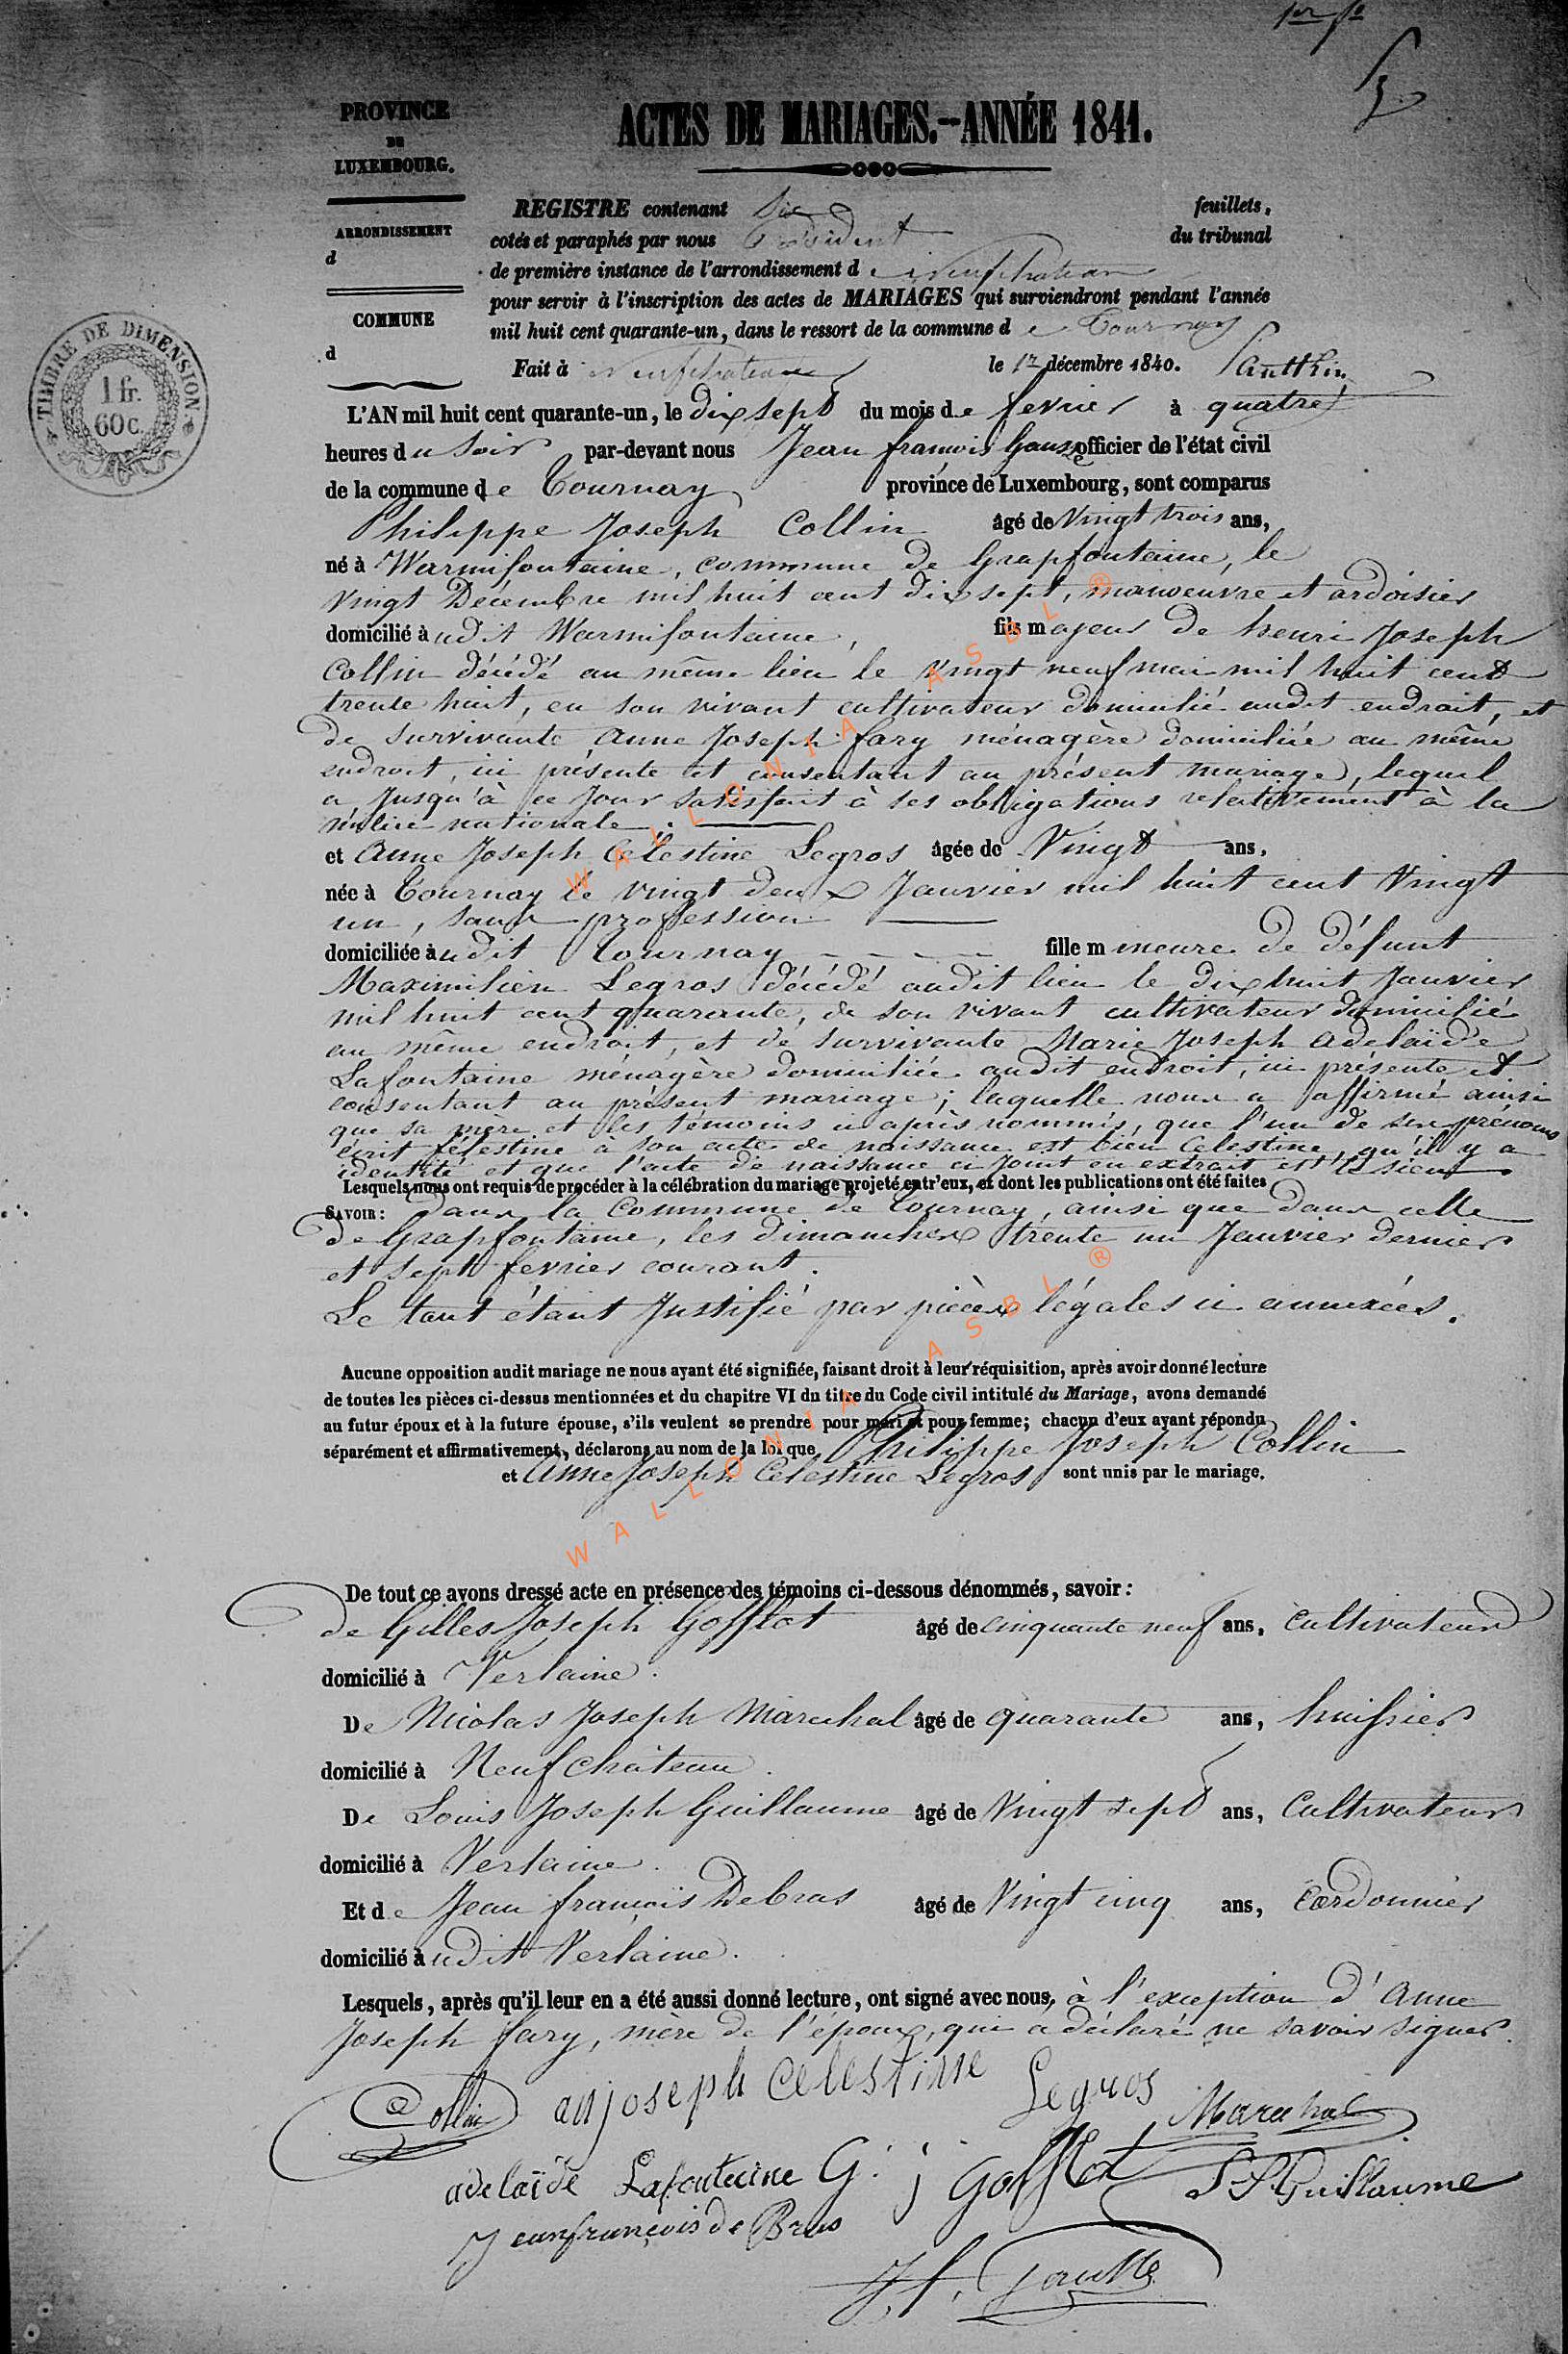 PROVINCE
DE
LUXEMBOURG.
ARRONDISSEMENT
d
COMMUNE
d
TIMBRE DE DIMENSION
1 fr.
60 c.
ACTES DE MARIAGES.-ANNÉE 1841.
REGISTRE contenant Six feuillets,
cotés et paraphés par nous Président du tribunal
de première instance de l'arrondissement de Neufchateau
pour servir à l'inscription des actes de MARIAGES qui surviendront pendant l'année
mil huit cent quarante-un, dans le ressort de la commune de Tournay
Fait à Neufchateau le 17 décembre 1840.
L'AN mil huit cent quarante-un, le dix sept du mois de fevrier à quatre
heures du Soir par-devant nous Jean françois Gausse officier de l'état civil
de la commune de Tournay province de Luxembourg, sont comparus
Philippe Joseph Collin âgé de Vingt trois ans,
né à Warmifontaine, commune de Grapfontaine, le
vingt Décembre mil huit cent dix sept, manoeuvre et ardoisier
domicilié audit Warmifontaine, fils majeur de henri Joseph
Collin décédé au même lieu le vingt neuf mai mil huit cent
trente huit, en son vivant cultivateur domicilié audit endroit, et
de survivante Anne Joseph fary ménagère domiciliée au même
endroit, ici présente et consentant au présent mariage, lequel
a Jusqu'à ce Jour satisfait à ses obligations relativement à la
milice nationale.
et Anne Joseph Celestine Legros âgée de Vingt ans,
née à Tournay le vingt deux Janvier mil huit cent Vingt
un, sans profession
domiciliée audit Tournay fille mineure de défunt
Maximilien Legros décédé audit lieu le dix huit Janvier
mil huit cent quarante, de son vivant cultivateur domicilié
au même endroit, et de survivante Marie Joseph Adelaïde
Lafontaine ménagère domiciliée audit endroit, ici présente et
consentant au présent mariage; laquelle nous a affirmé ainsi
que sa mère et les témoins ci après nommés, que l'un de ses prénoms
écrit félestine à son acte de naissance est bien Celestine, qu'il y a
identité et que l'acte de naissance ci joint en extrait est le sien
Lesquels nous ont requis de procéder à la célébration du mariage projeté entr'eux, et dont les publications ont été faites
SAVOIR: dans la Commune de Tournay, ainsi que dans celle
de Grapfontaine, les dimanches trente un Janvier dernier
et sept fevrier courant.
Le tout étant Justifié par pièces légales ci annexées.
Aucune opposition audit mariage ne nous ayant été signifiée, faisant droit à leur réquisition, après avoir donné lecture
de toutes les pièces ci-dessus mentionnées et du chapitre VI du titre du Code civil intitulé du Mariage, avons demandé
au futur époux et à la future épouse, s'ils veulent se prendre pour mari et pour femme; chacun d'eux ayant répondu
séparément et affirmativement, déclarons au nom de la loi que Philippe Joseph Collin
et Anne Joseph Celestine Legros sont unis par le mariage.
WALLONIA ASBL ®
WALLONIA ASBL ®
De tout ce avons dressé acte en présence des témoins ci-dessous dénommés, savoir:
de Gilles Joseph Gofflot âgé de cinquante neuf ans, cultivateur
domicilié à Verlaine.
De Nicolas Joseph Marechal âgé de quarante ans, huissier
domicilié à Neufchâteau.
De Louis Joseph Guillaume âgé de Vingt sept ans, Cultivateur
domicilié à Verlaine.
Et de Jean françois Debras âgé de Vingt cinq ans, Cordonnier
domicilié audit Verlaine.
Lesquels, après qu'il leur en a été aussi donné lecture, ont signé avec nous, à l'exception d'Anne
Joseph fary, mère de l'époux, qui a déclaré ne savoir signer.
Collin anjoseph Celestinne Legros Marechal
adelaïde Lafontaine G. j Gofflot L J Guillaume
Jeanfrançois de Bras
J. f. Gausse